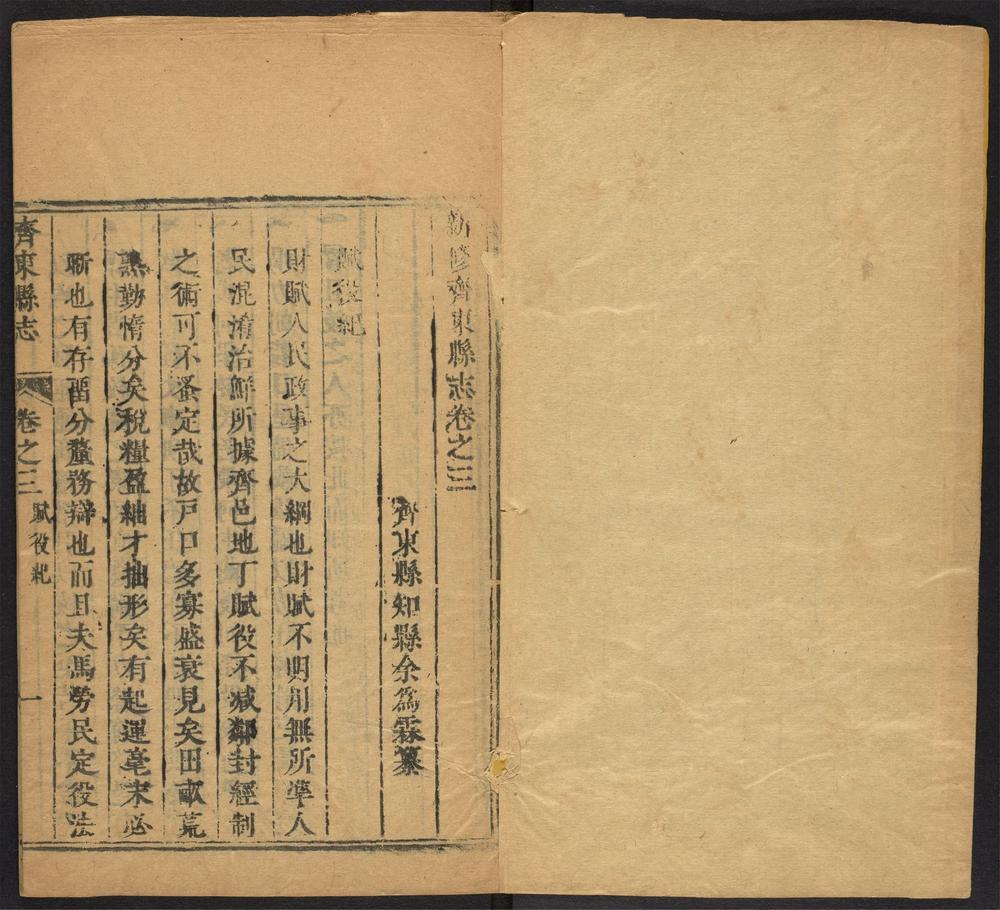 新修齊東縣志卷之三
齊東縣知縣余為霖纂
賦役紀
財賦人民政事之大綱也財賦不明用無所準人
民混淆治鮮所據齊邑地丁賦役不减鄰封經制
之術可不蚤定哉故戸口多寡盛衰見矣田畝荒
熟勤惰分矣稅糧盈絀才拙形矣有起運毫末必
晣也有存畱分釐務辯也而且夫馬勞民定役法
齊東縣志 卷之三 賦役紀 一